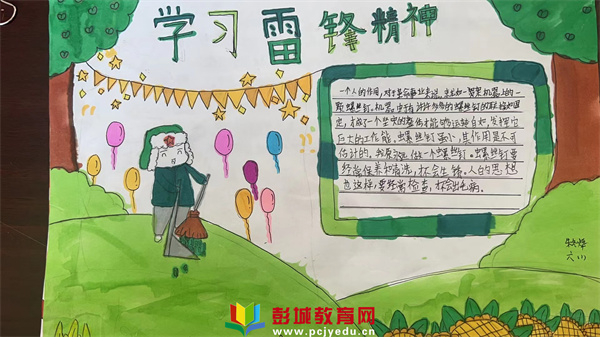 学习雷锋精神
一个人的作用,对于革命事业来说,就如一架机器上的一
颗螺丝钉。机器由于有许许多多的螺丝钉的联接和固
定,才成了一个坚实的整体,才能够运转自如,发挥它
巨大的工作能。螺丝钉虽小,其作用是不可
估计的。我愿永远做一个螺丝钉。螺丝钉要
经常保养和清洗,才不会生锈。人的思想
也这样,要经常检查,才不会出毛病。
六(1)
彭城教育网
www.pcjyedu.cn